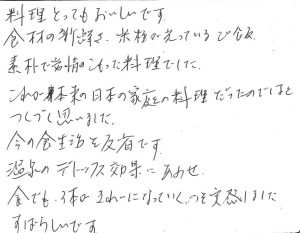 料理とってもおいしいです。
食材の新鮮さ、米粒が光っているご飯
素朴で愛情のこもった料理でした。
これが本来の日本の家庭の料理だったのではと
つくづく思いました。
今の食生活を反省です。
温泉のデトックス効果にあわせ
食でも、体がきれいになっていくのを実感しました
すばらしいです